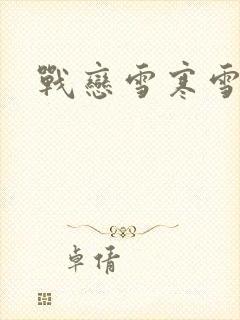 戰戀雪寒雪
卓倩